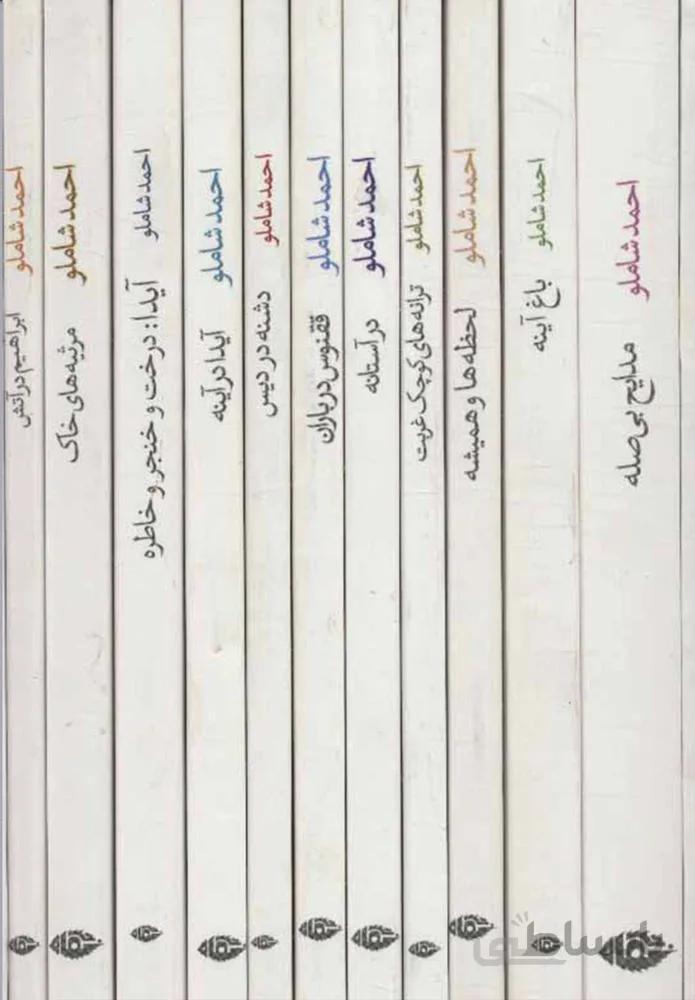 احمد شاملو
ابراهیم در آتش
احمد شاملو
مرثیه‌های خاک
احمد شاملو
آیدا: درخت و خنجر و خاطره
احمد شاملو
آیدا در آینه
احمد شاملو
دشنه در دیس
احمد شاملو
ققنوس در باران
احمد شاملو
در آستانه
احمد شاملو
ترانه‌های کوچک غربت
احمد شاملو
لحظه‌ها و همیشه
احمد شاملو
باغ آینه
احمد شاملو
مدایح بی‌صله